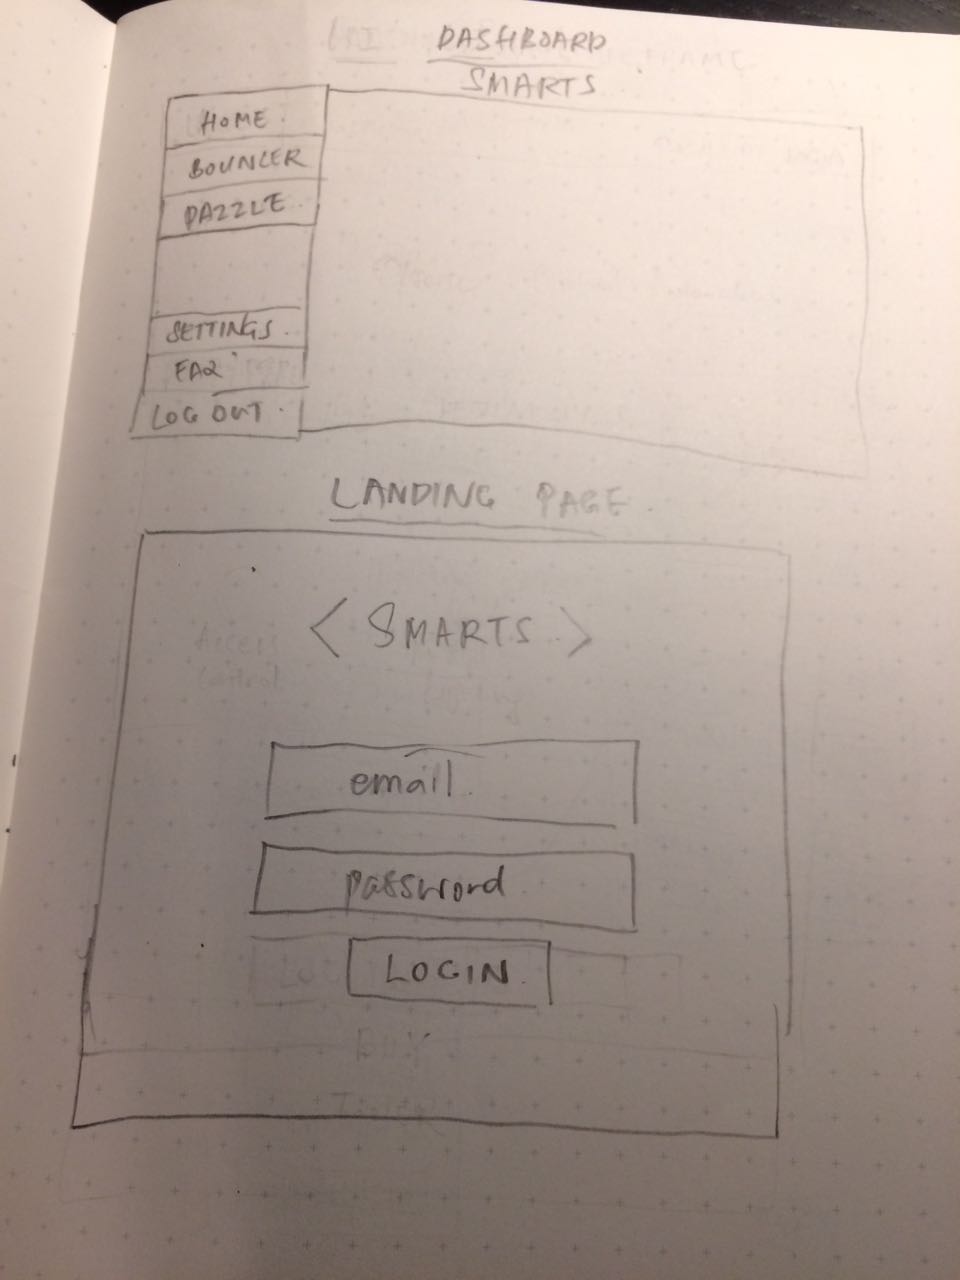 DASHBOARD
SMARTS
HOME
BOUNCER
DAZZLE
SETTINGS
FAQ
LOG OUT
LANDING PAGE
< SMARTS >
email
password
LOGIN